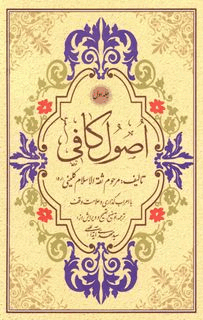 جلد اول
اصول کافی
تألیف: مرحوم ثقة الاسلام کلینی (ره)
با اعراب گذاری و علامت وقف
ترجمه و توضیح